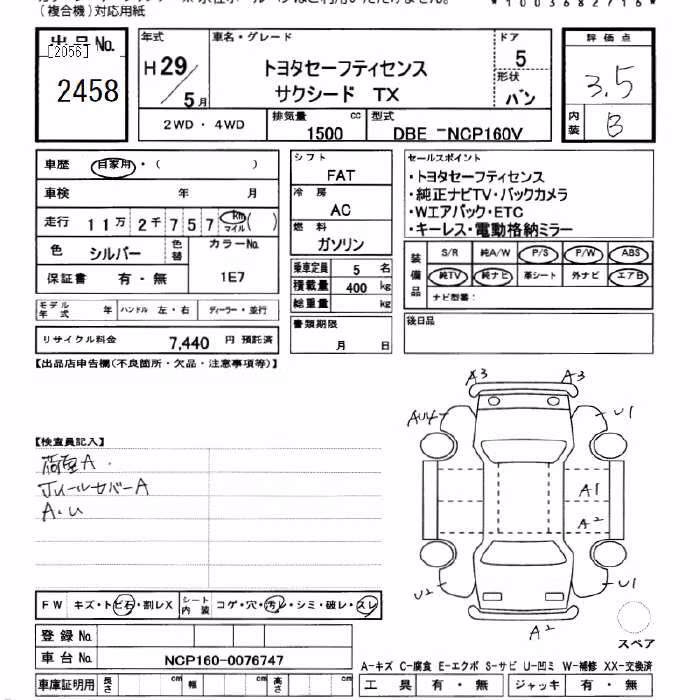 *1003682716*
(複合機)対応用紙
出品No.
[2056]
2458
年式
H29/5月
車名・グレード
トヨタセーフティセンス
サクシード TX
ドア
5
形状
バン
2WD・4WD
排気量
1500 cc
型式
DBE-NCP160V
評価点
3.5
内装
B
車歴 自家用・( )
車検 年 月
走行 11万2千757 km マイル( )
色 シルバー 色替 カラーNo. 1E7
保証書 有・無
モデル年式 年 ハンドル 左・右 ディーラー・並行
リサイクル料金 7,440 円 預託済
シフト
FAT
冷房
AC
燃料
ガソリン
乗車定員 5 名
積載量 400 kg
総重量 kg
書類期限
月 日
セールスポイント
・トヨタセーフティセンス
・純正ナビTV・バックカメラ
・Wエアバック・ETC
・キーレス・電動格納ミラー
装備品
S/R 純A/W P/S P/W ABS
純TV 純ナビ 革シート 外ナビ エアB
ナビ型番:
後日品
【出品店申告欄(不良箇所・欠品・注意事項等)】
【検査員記入】
荷室A
ホイールカバーA
A.U
A3 A3
AU4 U1
A1
A2
U2 U1
A2
スペア
FW キズ・トビ石・割レX
シート内装 コゲ・穴・汚レ・シミ・破レ・スレ
登録No.
車台No. NCP160-0076747
車庫証明用 長さ cm 幅 cm 高さ cm
A-キズ C-腐食 E-エクボ S-サビ U-凹ミ W-補修 XX-交換済
工具 有・無 ジャッキ 有・無